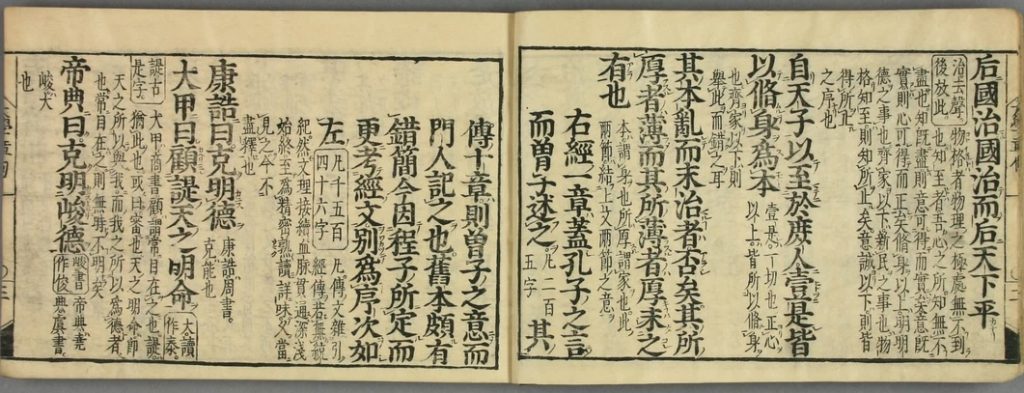 后國治國治而后天下平
治去聲 物格者物理之極處無不到
後放此 也知至者吾心之所知無不
盡也知既盡則意可得而實矣意既
實則心可得而正矣脩身以上明明
德之事也齊家以下新民之事也物
格知至則知所止矣意誠以下則皆
得所止
之序也
自天子以至於庶人壹是皆
以脩身爲本
壹是一切也正心
以上皆所以脩身
也齊家以下則
舉此而錯之耳
其本亂而末治者否矣其所
厚者薄而其所薄者厚未之
有也
本謂身也所厚謂家也此
兩節結上文兩節之意
右經一章蓋孔子之言
而曾子述之 凡二百五字 其
傳十章則曾子之意而
門人記之也舊本頗有
錯簡今因程子所定而
更考經文別爲序次如
左
凡千五百
四十六字
凡傳文雜引
經傳若無統
紀然文理接續血脈貫通深淺
始終至爲精密熟讀詳味久當
見之今不
盡釋也
康誥曰克明德
康誥周書。
克能也
大甲曰顧諟天之明命
大讀
作泰
諟古
是字
大甲商書顧謂常目在之也諟
猶此也或曰審也天之明命即
天之所以與我而我之所以爲德者
也常目在之則無時不明矣
帝典曰克明峻德
峻書
作俊
帝典堯
典虞書。
峻大
也